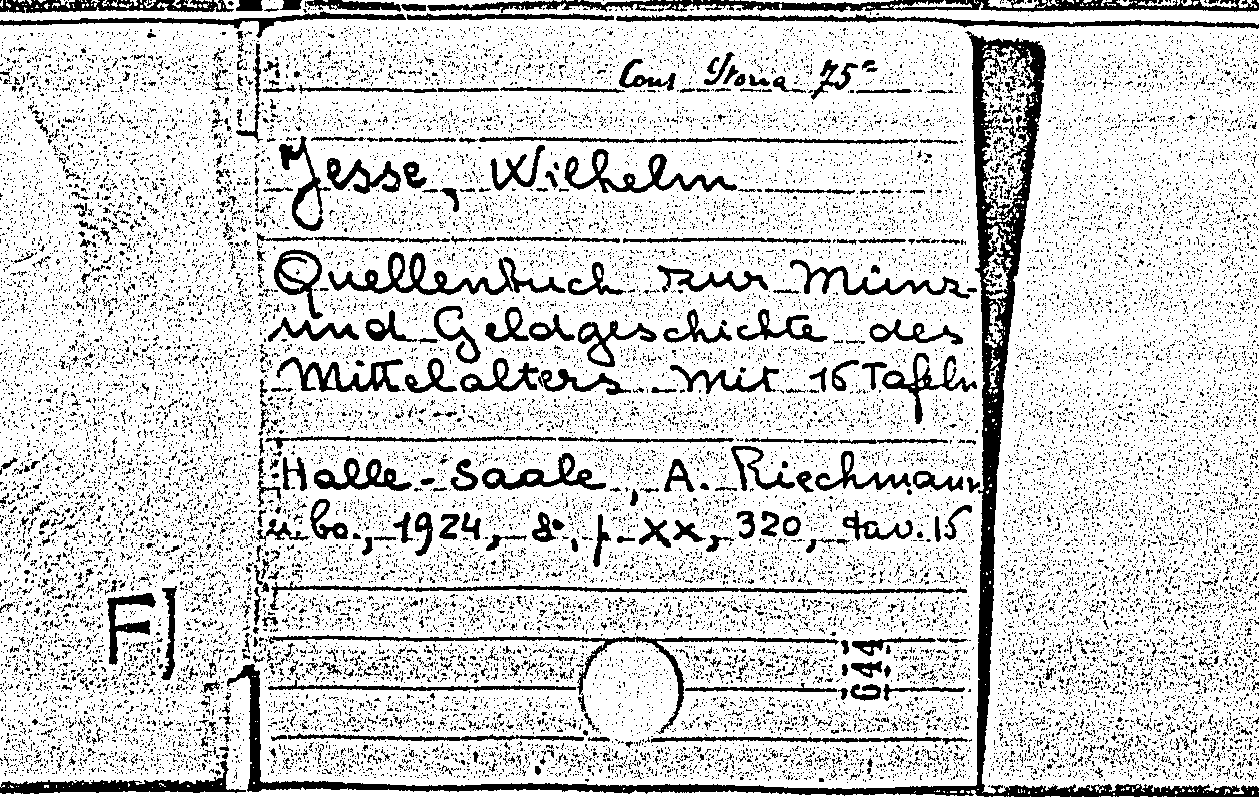 Cons Storia 75ᶜ
Jesse, Wilhelm
Quellenbuch zur Münz-
und Geldgeschichte des
Mittelalters mit 16 Tafeln
Halle-Saale, A. Riechmann
u. Co., 1924, 8°, p. XX, 320, tav. 15
FJ
644